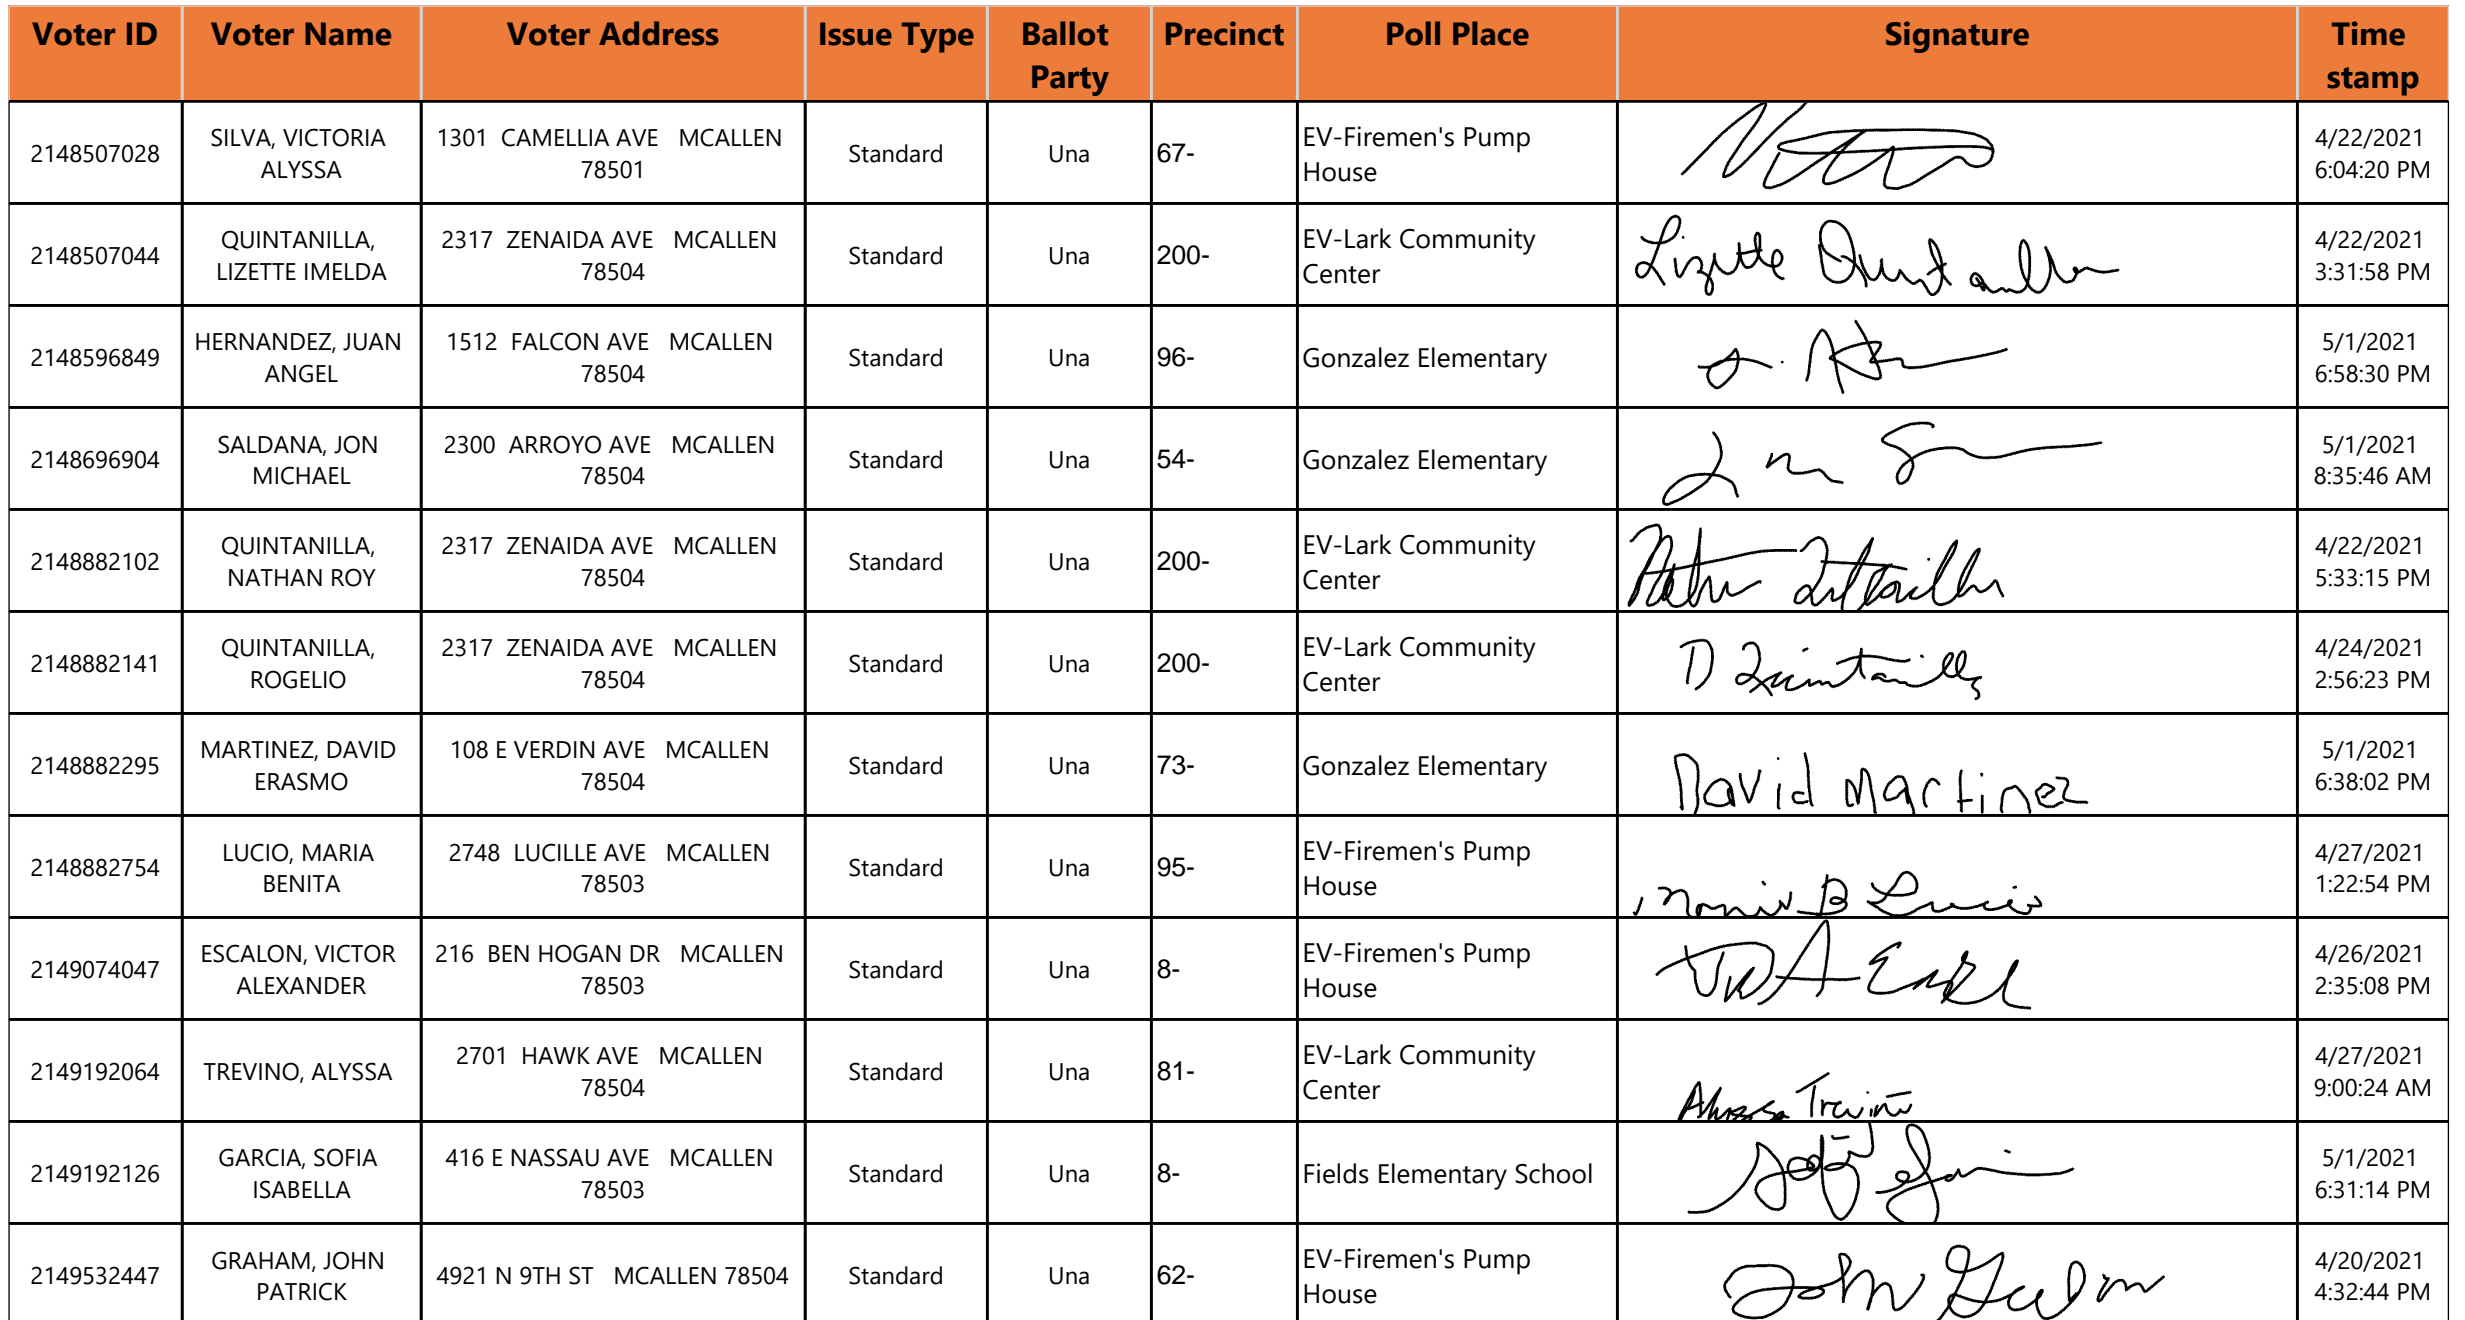 Voter ID Voter Name Voter Address Issue Type Ballot Party Precinct Poll Place Signature Time stamp
2148507028 SILVA, VICTORIA ALYSSA 1301 CAMELLIA AVE MCALLEN 78501 Standard Una 67- EV-Firemen's Pump House 4/22/2021 6:04:20 PM
2148507044 QUINTANILLA, LIZETTE IMELDA 2317 ZENAIDA AVE MCALLEN 78504 Standard Una 200- EV-Lark Community Center Lizette Quintanilla 4/22/2021 3:31:58 PM
2148596849 HERNANDEZ, JUAN ANGEL 1512 FALCON AVE MCALLEN 78504 Standard Una 96- Gonzalez Elementary 5/1/2021 6:58:30 PM
2148696904 SALDANA, JON MICHAEL 2300 ARROYO AVE MCALLEN 78504 Standard Una 54- Gonzalez Elementary 5/1/2021 8:35:46 AM
2148882102 QUINTANILLA, NATHAN ROY 2317 ZENAIDA AVE MCALLEN 78504 Standard Una 200- EV-Lark Community Center 4/22/2021 5:33:15 PM
2148882141 QUINTANILLA, ROGELIO 2317 ZENAIDA AVE MCALLEN 78504 Standard Una 200- EV-Lark Community Center Quintanilla 4/24/2021 2:56:23 PM
2148882295 MARTINEZ, DAVID ERASMO 108 E VERDIN AVE MCALLEN 78504 Standard Una 73- Gonzalez Elementary David Martinez 5/1/2021 6:38:02 PM
2148882754 LUCIO, MARIA BENITA 2748 LUCILLE AVE MCALLEN 78503 Standard Una 95- EV-Firemen's Pump House Maria B Lucio 4/27/2021 1:22:54 PM
2149074047 ESCALON, VICTOR ALEXANDER 216 BEN HOGAN DR MCALLEN 78503 Standard Una 8- EV-Firemen's Pump House 4/26/2021 2:35:08 PM
2149192064 TREVINO, ALYSSA 2701 HAWK AVE MCALLEN 78504 Standard Una 81- EV-Lark Community Center Alyssa Treviño 4/27/2021 9:00:24 AM
2149192126 GARCIA, SOFIA ISABELLA 416 E NASSAU AVE MCALLEN 78503 Standard Una 8- Fields Elementary School 5/1/2021 6:31:14 PM
2149532447 GRAHAM, JOHN PATRICK 4921 N 9TH ST MCALLEN 78504 Standard Una 62- EV-Firemen's Pump House John 4/20/2021 4:32:44 PM